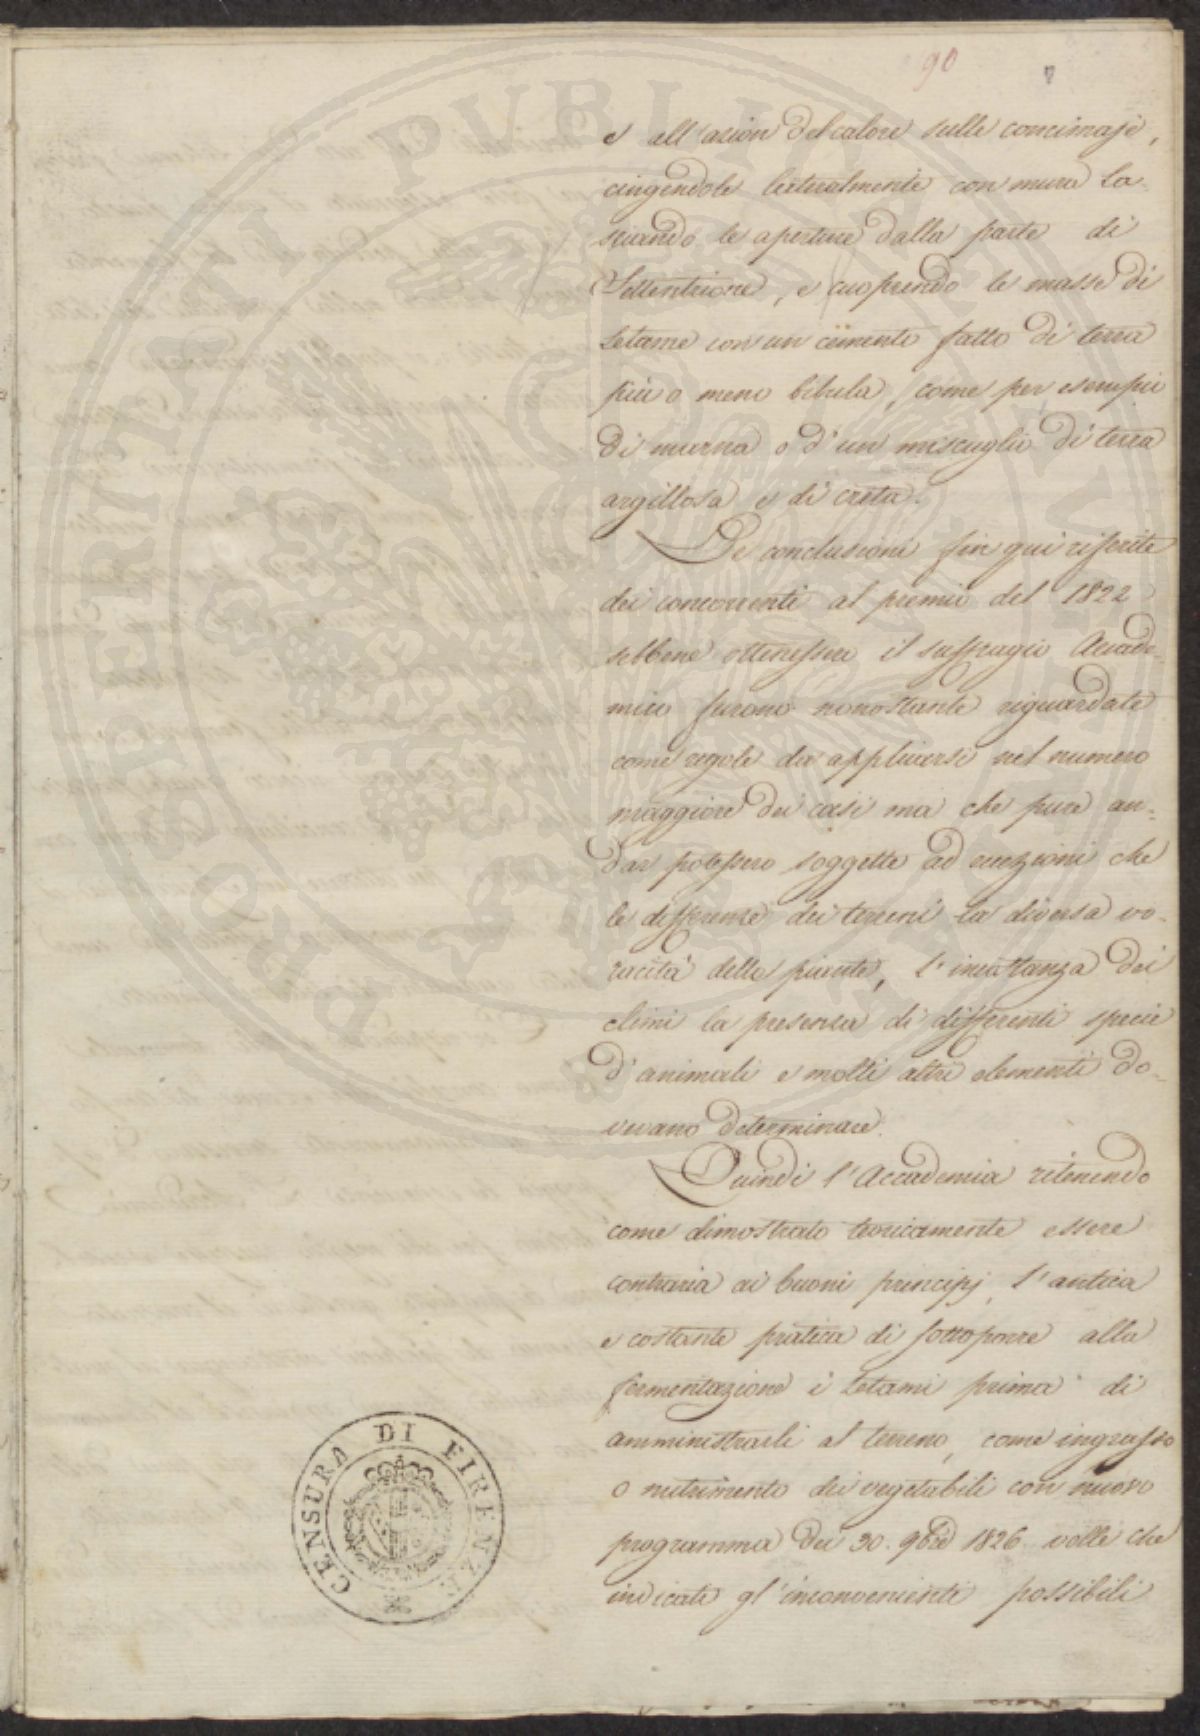 90
7
e all'azion del calore sulle concimaje,
cingendole lateralmente con mura la-
sciando le aperture dalla parte di
Settentrione, e cuoprendo le masse di
letame con un cemento fatto di terra
più o meno bibula, come per esempio
di marna o d'un miscuglio di terra
argillosa e di creta.
Le conclusioni fin qui riferite
dei concorrenti al premio del 1822
sebbene ottenesser il suffragio Accade-
mico furono nonostante riguardate
come regole da applicarsi nel numero
maggiore dei casi ma che pure an-
dar potessero soggette ad eccezioni che
le differenze dei terreni la diversa vo-
racità delle piante, l'incostanza dei
climi la presenza di differenti specie
d'animali e molti altri elementi do-
vevano determinare.
Quindi l'Accademia ritenendo
come dimostrato teoricamente essere
contraria ai buoni principj, l'antica
e costante pratica di sottoporre alla
fermentazione i letami prima di
amministrarli al terreno, come ingrasso
o nutrimento dei vegetabili con nuovo
programma dei 30. 9bre 1826. volle che
indicati gl'inconvenienti possibili
CENSURA DI FIRENZE
PROSPERITATI PUBLICAE